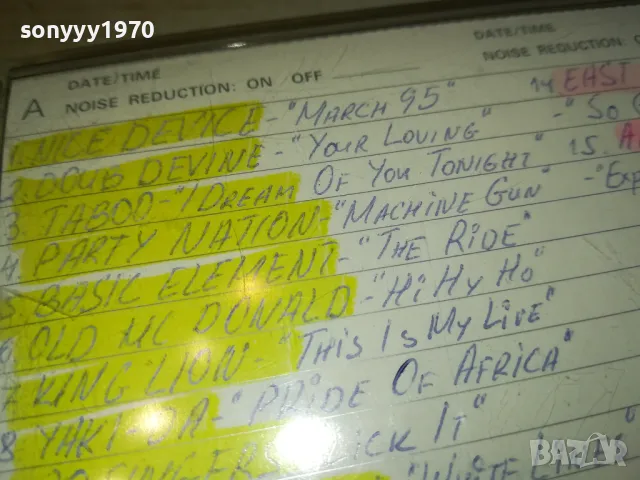 sonyyy1970
DATE/TIME
A NOISE REDUCTION: ON OFF
DATE/TIME
NOISE REDUCTION:
1. NICE DEVICE - "MARCH 95"
2. DOUB DEVINE - "YOUR LOVING"
3. TABOO - "I DREAM OF YOU TONIGHT"
4. PARTY NATION - "MACHINE GUN"
5. BASIC ELEMENT - "THE RIDE"
6 OLD MC DONALD - "HI HY HO"
7 KING LION - "THIS IS MY LIFE"
8 YAKI-DA - "PRIDE OF AFRICA"
IT"
"WHITE
14 EAST
- "SO
15.
BAZAR
bg